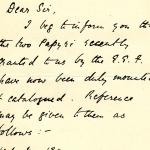 Dear Sir,
I beg to inform you th
the two Papyri recently
granted to us by the E.E.F.
have now been duly mounted
& catalogued. Reference
may be given to them as
follows:-